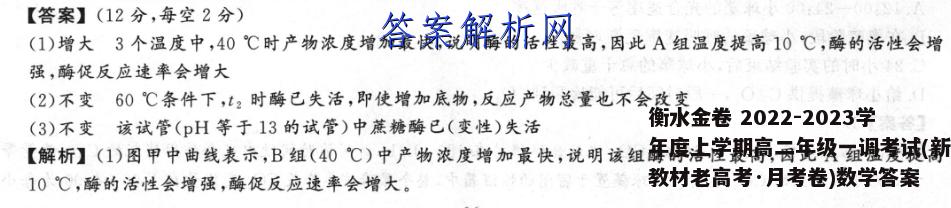 【答案】(12分,每空2分)
(1)增大 3个温度中,40 ℃时产物浓度增加最快,说明酶的活性最高,因此A组温度提高10 ℃,酶的活性会增
强,酶促反应速率会增大
(2)不变 60 ℃条件下,t₂时酶已失活,即使增加底物,反应产物总量也不会改变
(3)不变 该试管(pH等于13的试管)中蔗糖酶已(变性)失活
【解析】(1)图甲中曲线表示,B组(40 ℃)中产物浓度增加最快,说明该组酶的活性最高,因此A组温度提高
10 ℃,酶的活性会增强,酶促反应速率会增大。
答案解析网
衡水金卷 2022-2023学
年度上学期高二年级一调考试(新
教材老高考·月考卷)数学答案